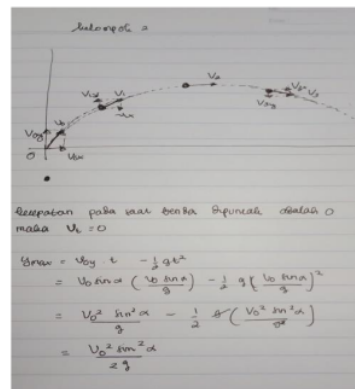 kelompok 2
V₁y V₁ V₂
V₀y V₀ V₁x V₃x V₃y V₃
O V₀x
kecepatan pada saat benda dipuncak adalah 0
maka Vₜ = 0
Ymax = V₀y . t - 1/2 gt²
= V₀ sin α (V₀ sin α / g) - 1/2 g (V₀ sin α / g)²
= V₀² sin² α / g - 1/2 g (V₀² sin² α / g²)
= V₀² sin² α / 2g